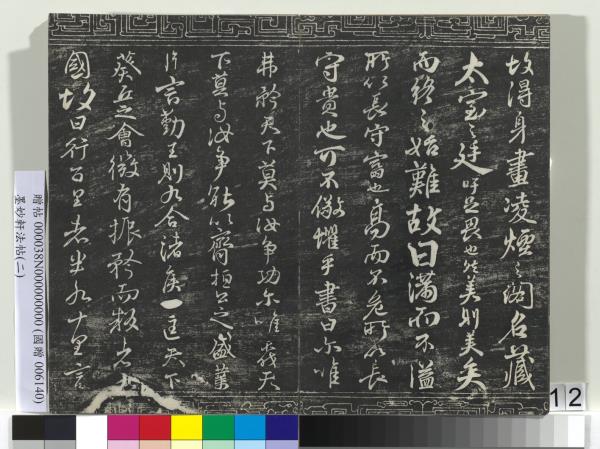 故得身畫凌煙之閣名藏
太室之廷吁足畏也然美則美矣
而終之始難故曰滿而不溢
所以長守富也高而不危所以長
守貴也可不儆懼乎書曰爾唯
弗矜天下莫與汝爭功爾唯不伐天
下莫與汝爭能以齊桓公之盛業
片言勤王則九合諸侯一匡天下
葵丘之會微有振矜而叛者九
國故曰行百里者半九十里言
贈帖 000038N000000000 (國贈 006140)
墨妙軒法帖(二)
12